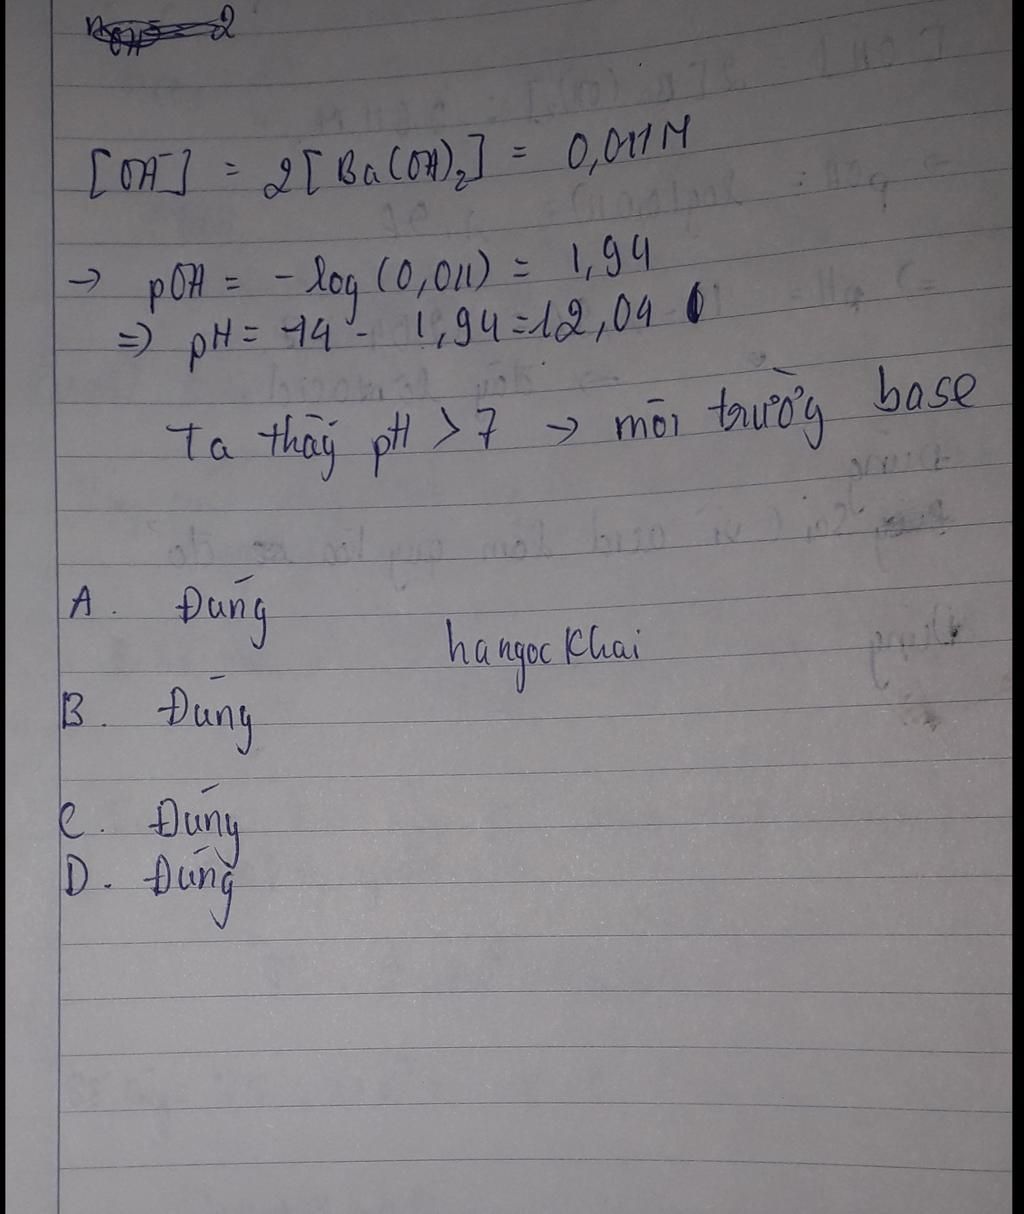 2
[OH⁻] = 2[Ba(OH)₂] = 0,011M
→ pOH = -log(0,011) = 1,94
⇒ pH = 14 - 1,94 = 12,04
Ta thấy pH > 7 → môi trường base
A. Đúng
hangockhai
B. Đúng
C. Đúng
D. Đúng